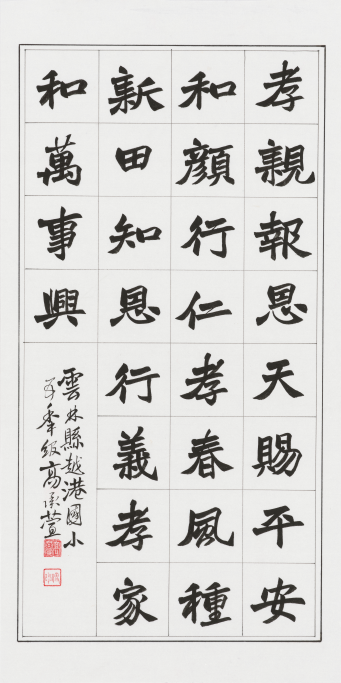 孝親報恩天賜平安
和顏行仁孝春風種
新田知恩行義孝家
和萬事興
雲林縣越港國小
五年級高承萱